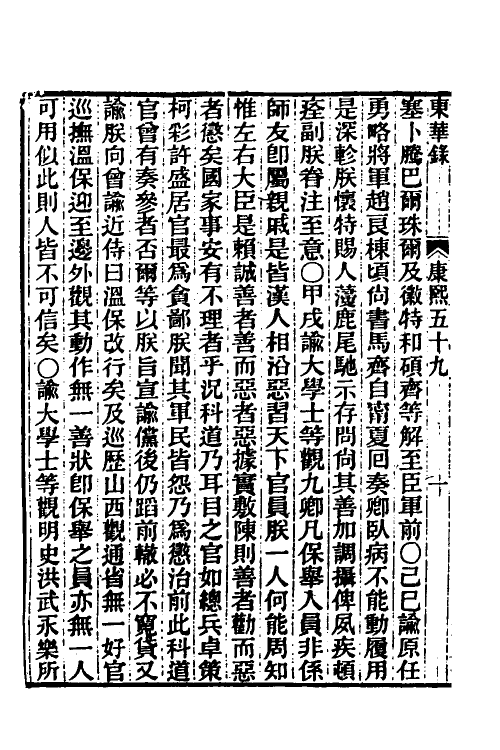 東華錄 康熙五十九 十
塞卜騰巴爾珠爾及徽特和碩齊等解至臣軍前○己巳諭原任
勇略將軍趙良棟頃尚書馬齊自甯夏回奏卿臥病不能動履用
是深軫朕懷特賜人薓鹿尾馳示存問尚其善加調攝俾夙疾頓
痊副朕眷注至意○甲戌諭大學士等觀九卿凡保舉人員非係
師友卽屬親戚是皆漢人相沿惡習天下官員朕一人何能周知
惟左右大臣是賴誠善者善而惡者惡據實敷陳則善者勸而惡
者懲矣國家事安有不理者乎況科道乃耳目之官如總兵卓策
柯彩許盛居官最爲貪鄙朕聞其軍民皆怨乃爲懲治前此科道
官曾有奏參者否爾等以朕旨宣諭儻後仍蹈前轍必不寬貸又
諭朕向曾諭近侍曰溫保改行矣及巡歷山西觀通省無一好官
巡撫溫保迎至邊外觀其動作無一善狀卽保舉之員亦無一人
可用似此則人皆不可信矣○諭大學士等觀明史洪武永樂所